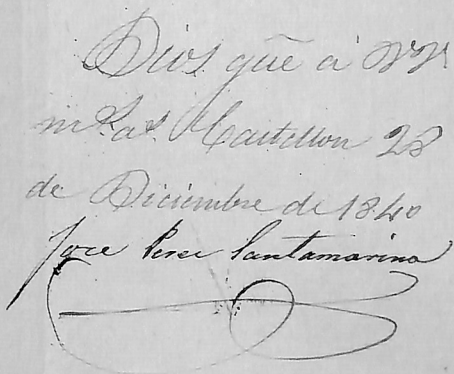 Dios gũe á VV
m.s a.s Castellon 28
de Diciembre de 1840
Jose Perez Santamarina